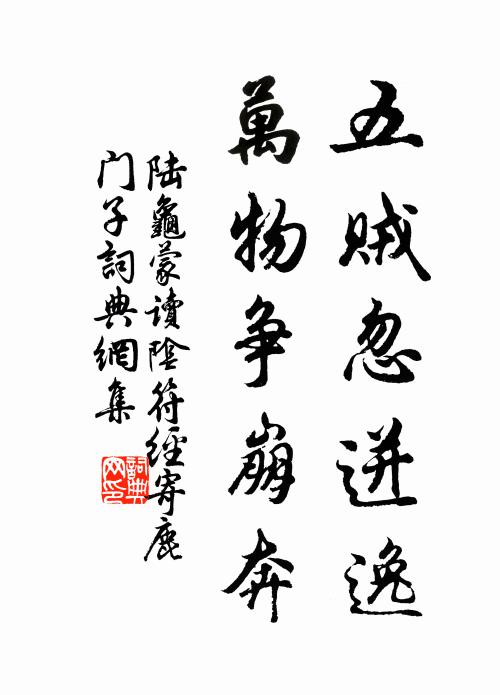 五贼忽迸逸
萬物争崩奔
陆龜蒙讀陰符經寄鹿
门子詞典網集
詞典
网印